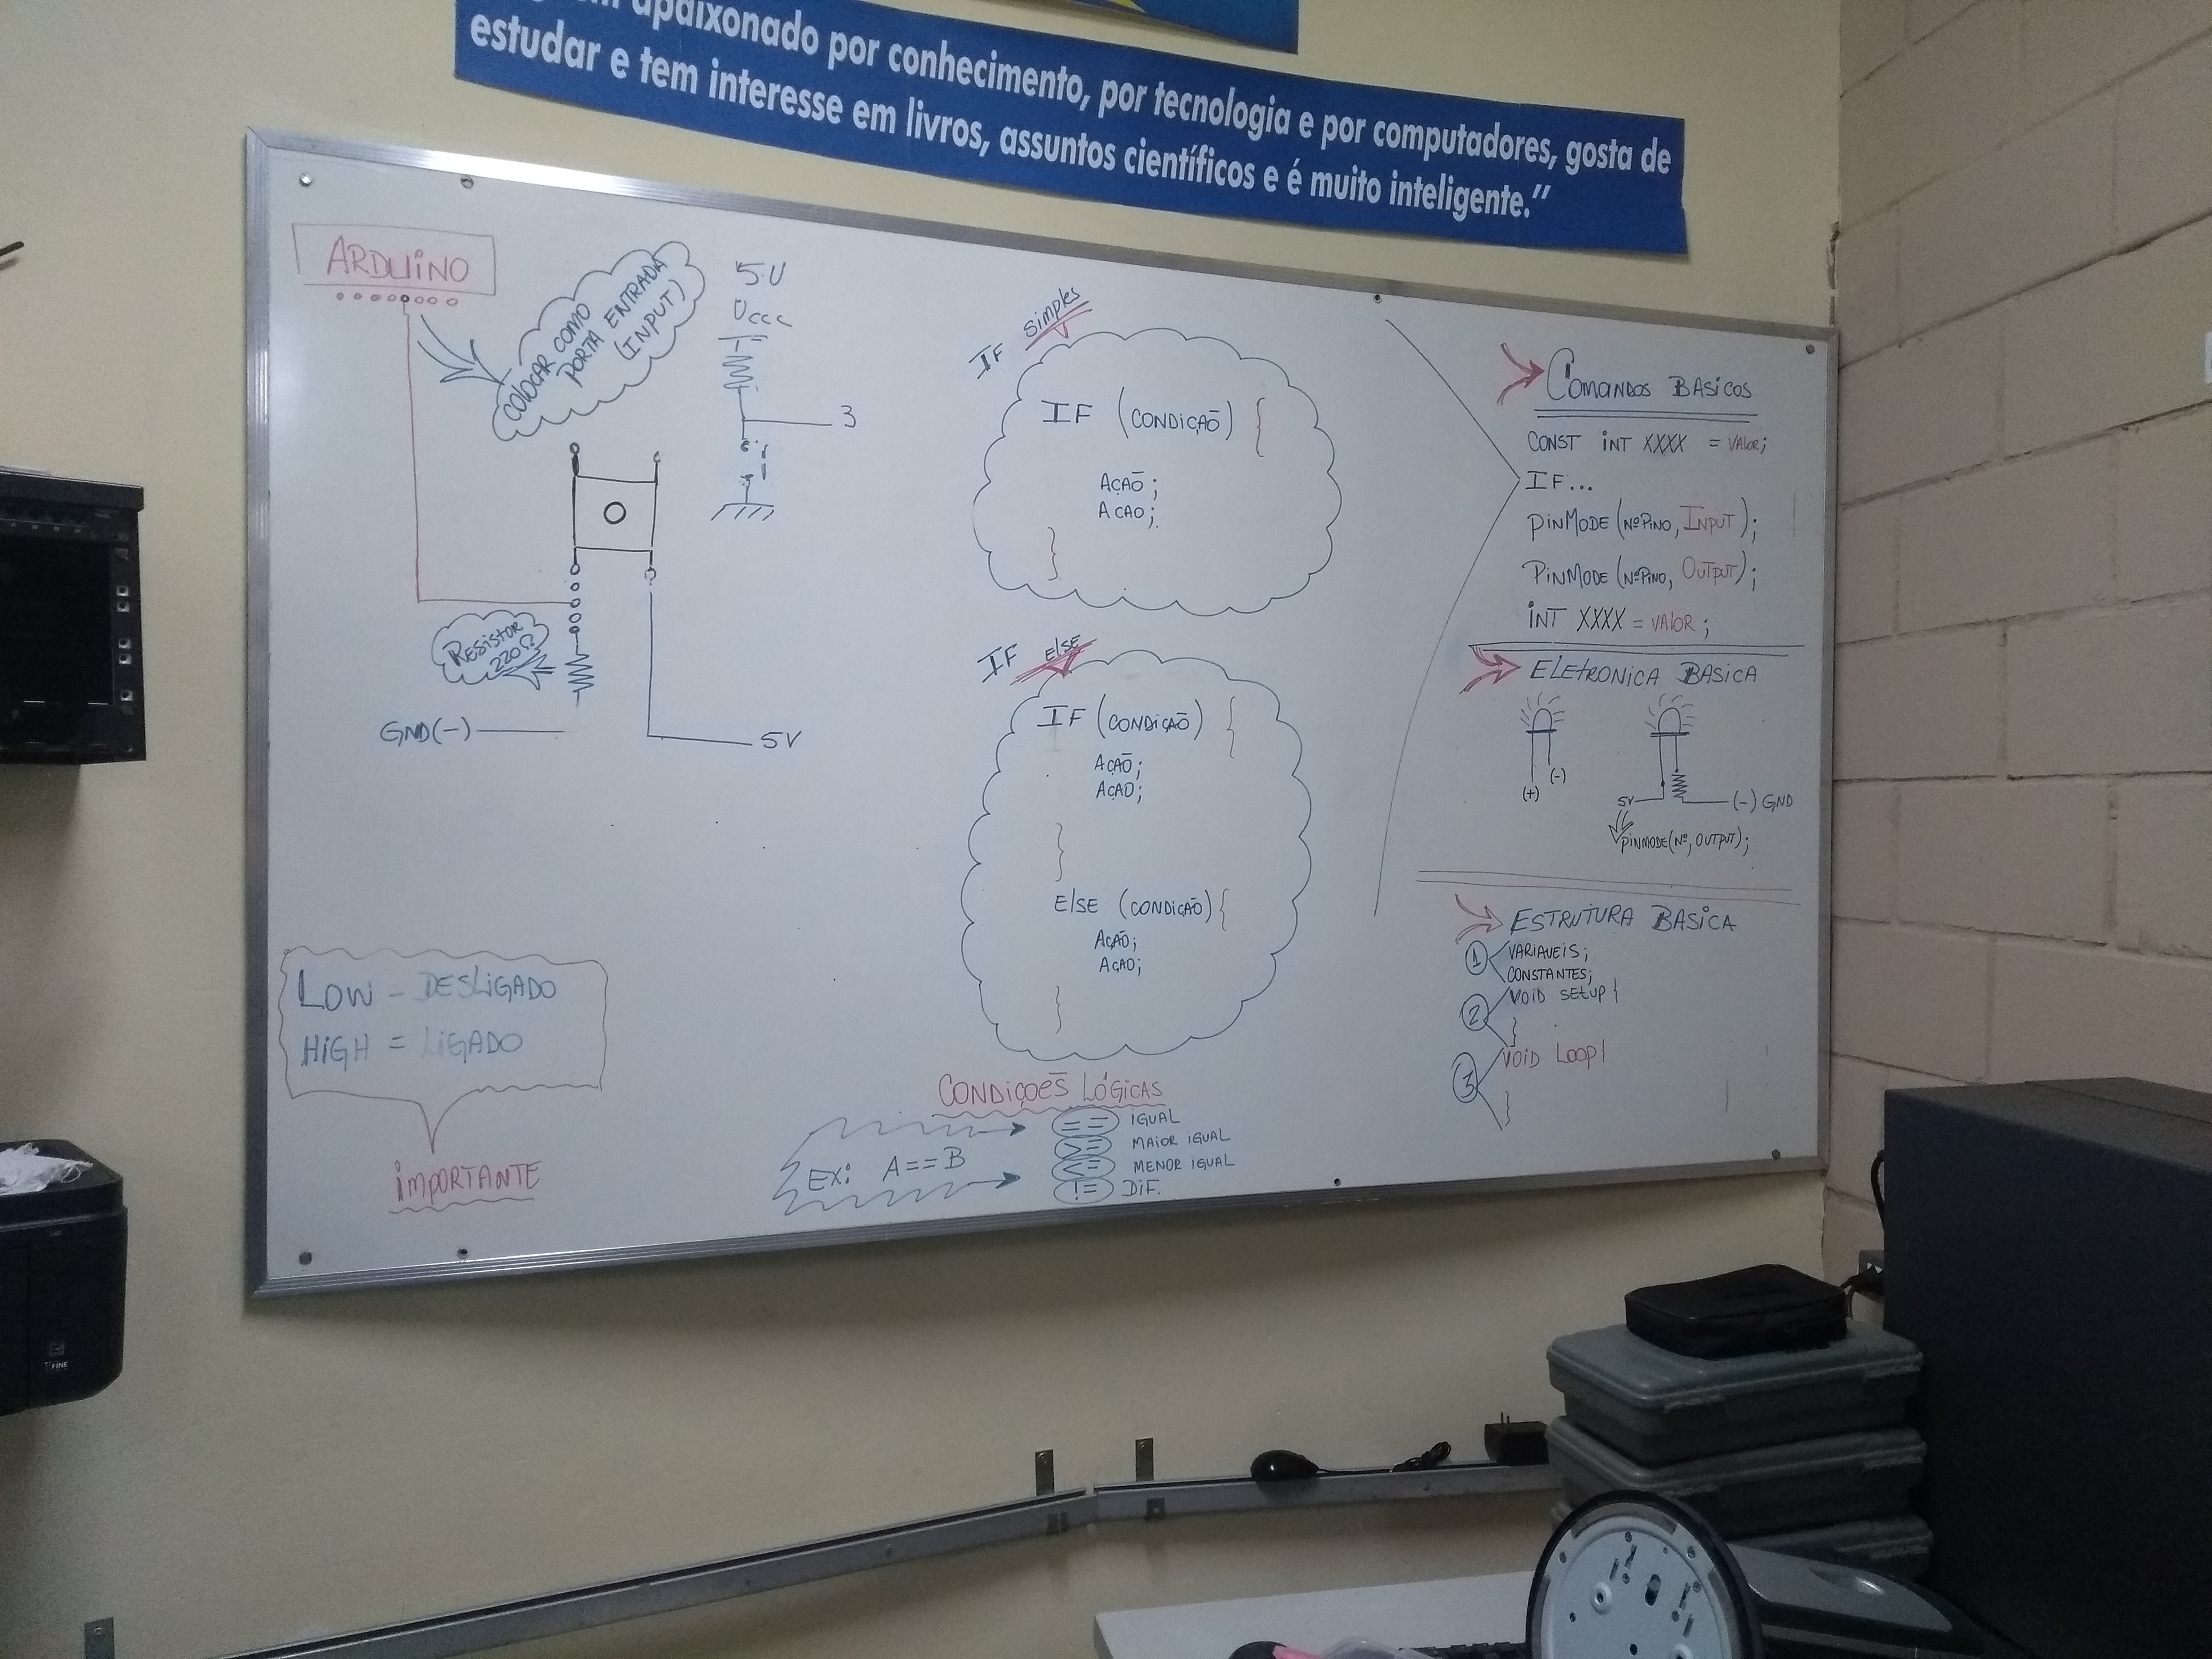 apaixonado por conhecimento, por tecnologia e por computadores, gosta de
estudar e tem interesse em livros, assuntos científicos e é muito inteligente.”
ARDUiNO
COlOCAR COMO
PORTA ENTRADA
(INPUT)
5V
3
RESiSTOR
220Ω
GND(-)
5V
LOW - DESLiGADO
HiGH = LiGADO
iMPORTANTE
IF Simples
IF (CONDiÇAÕ) {
AÇAÕ;
ACAO;
}
IF ElSE
IF (CONDiÇAÕ) {
AÇAÕ;
AÇAO;
}
ElSE (CONDiÇAÕ) {
AÇAÕ;
AÇAO;
}
CONDiÇOES LÓGICAS
EX: A==B
== IGUAL
>= MAiOR IGUAL
<= MENOR IGUAL
!= DiF.
COMANDOS BASICOS
CONST iNT XXXX = VAlOR;
IF...
PiNMODE (NºPiNO, INPUT);
PiNMODE (NºPiNO, OUTPUT);
iNT XXXX = VAlOR;
ELEtRONiCA BASiCA
(+) (-)
5V (-) GND
PiNMODE(Nº, OUTPUT);
ESTRUTURA BASiCA
1 VARiAVEiS;
CONSTANTES;
2 VOiD SEtUP{
}
3 VOiD LOOP{
}
FINE